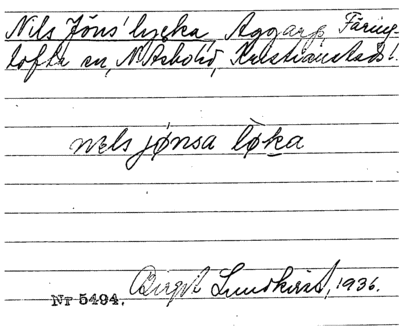 Nils Jöns' lycka, Aggarp, Färing-
tofta sn, N. Åsbo hd, Kristianstads l.
nɪls jønsa løka
Birgit Lundkvist, 1936.
Nr 5494.